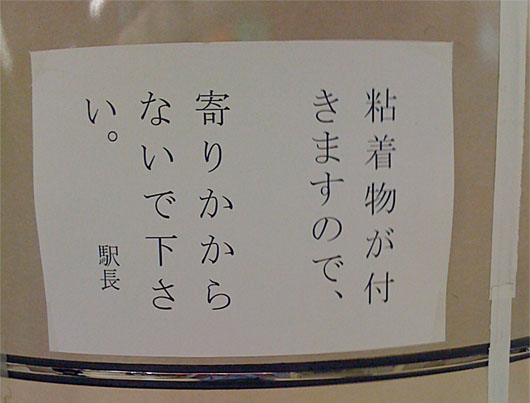 粘着物が付
きますので、
寄りかから
ないで下さ
い。
駅長